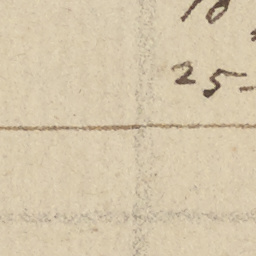 10
25-